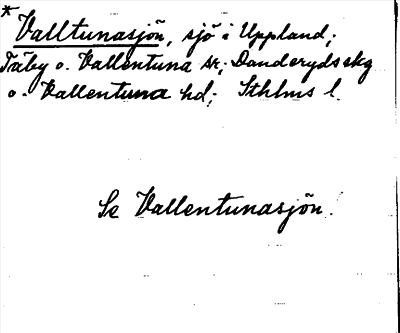 * Valltunasjön, sjö i Uppland;
Täby o. Vallentuna sr; Danderyds skg
o. Vallentuna hd; Sthlms l.
Se Vallentunasjön.